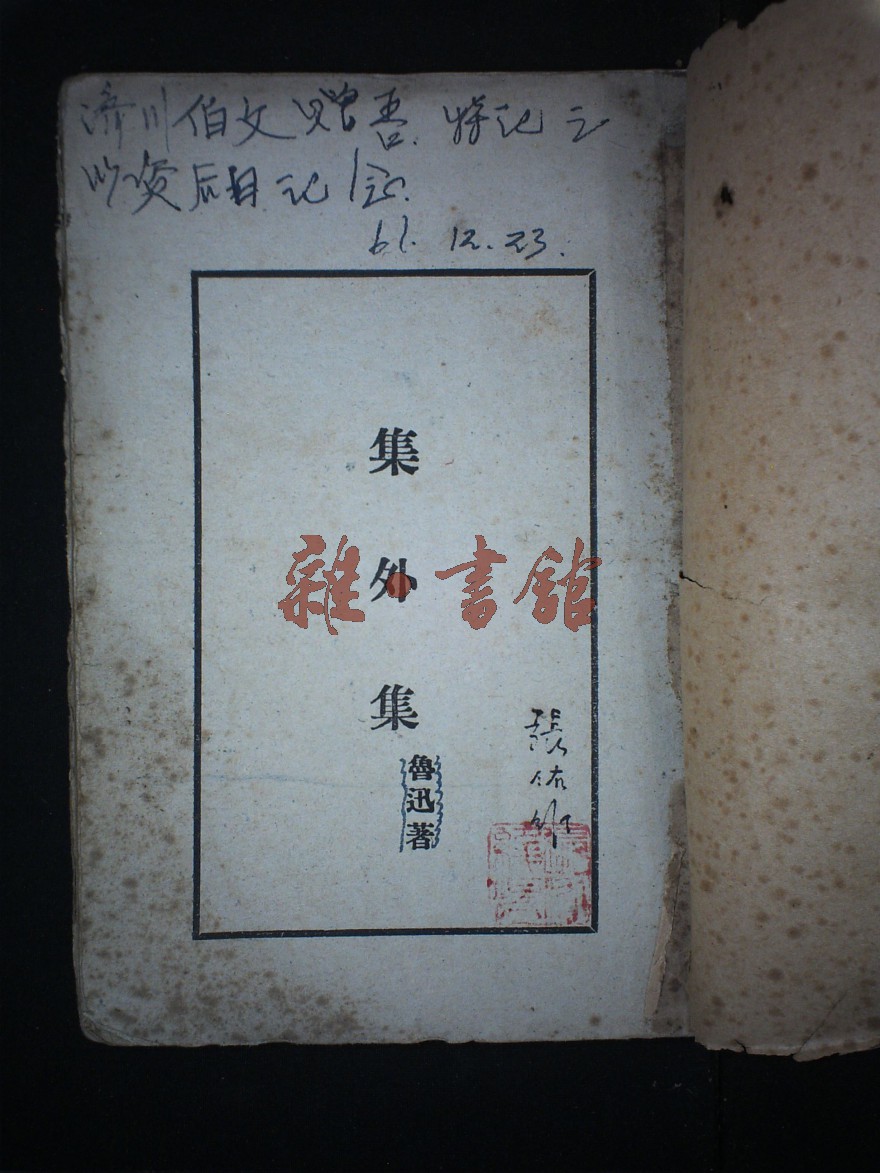 济川伯文赠吾.特记之
以资后日记念.
61.12.23.
集外集
雜·書館
魯迅著
張佑